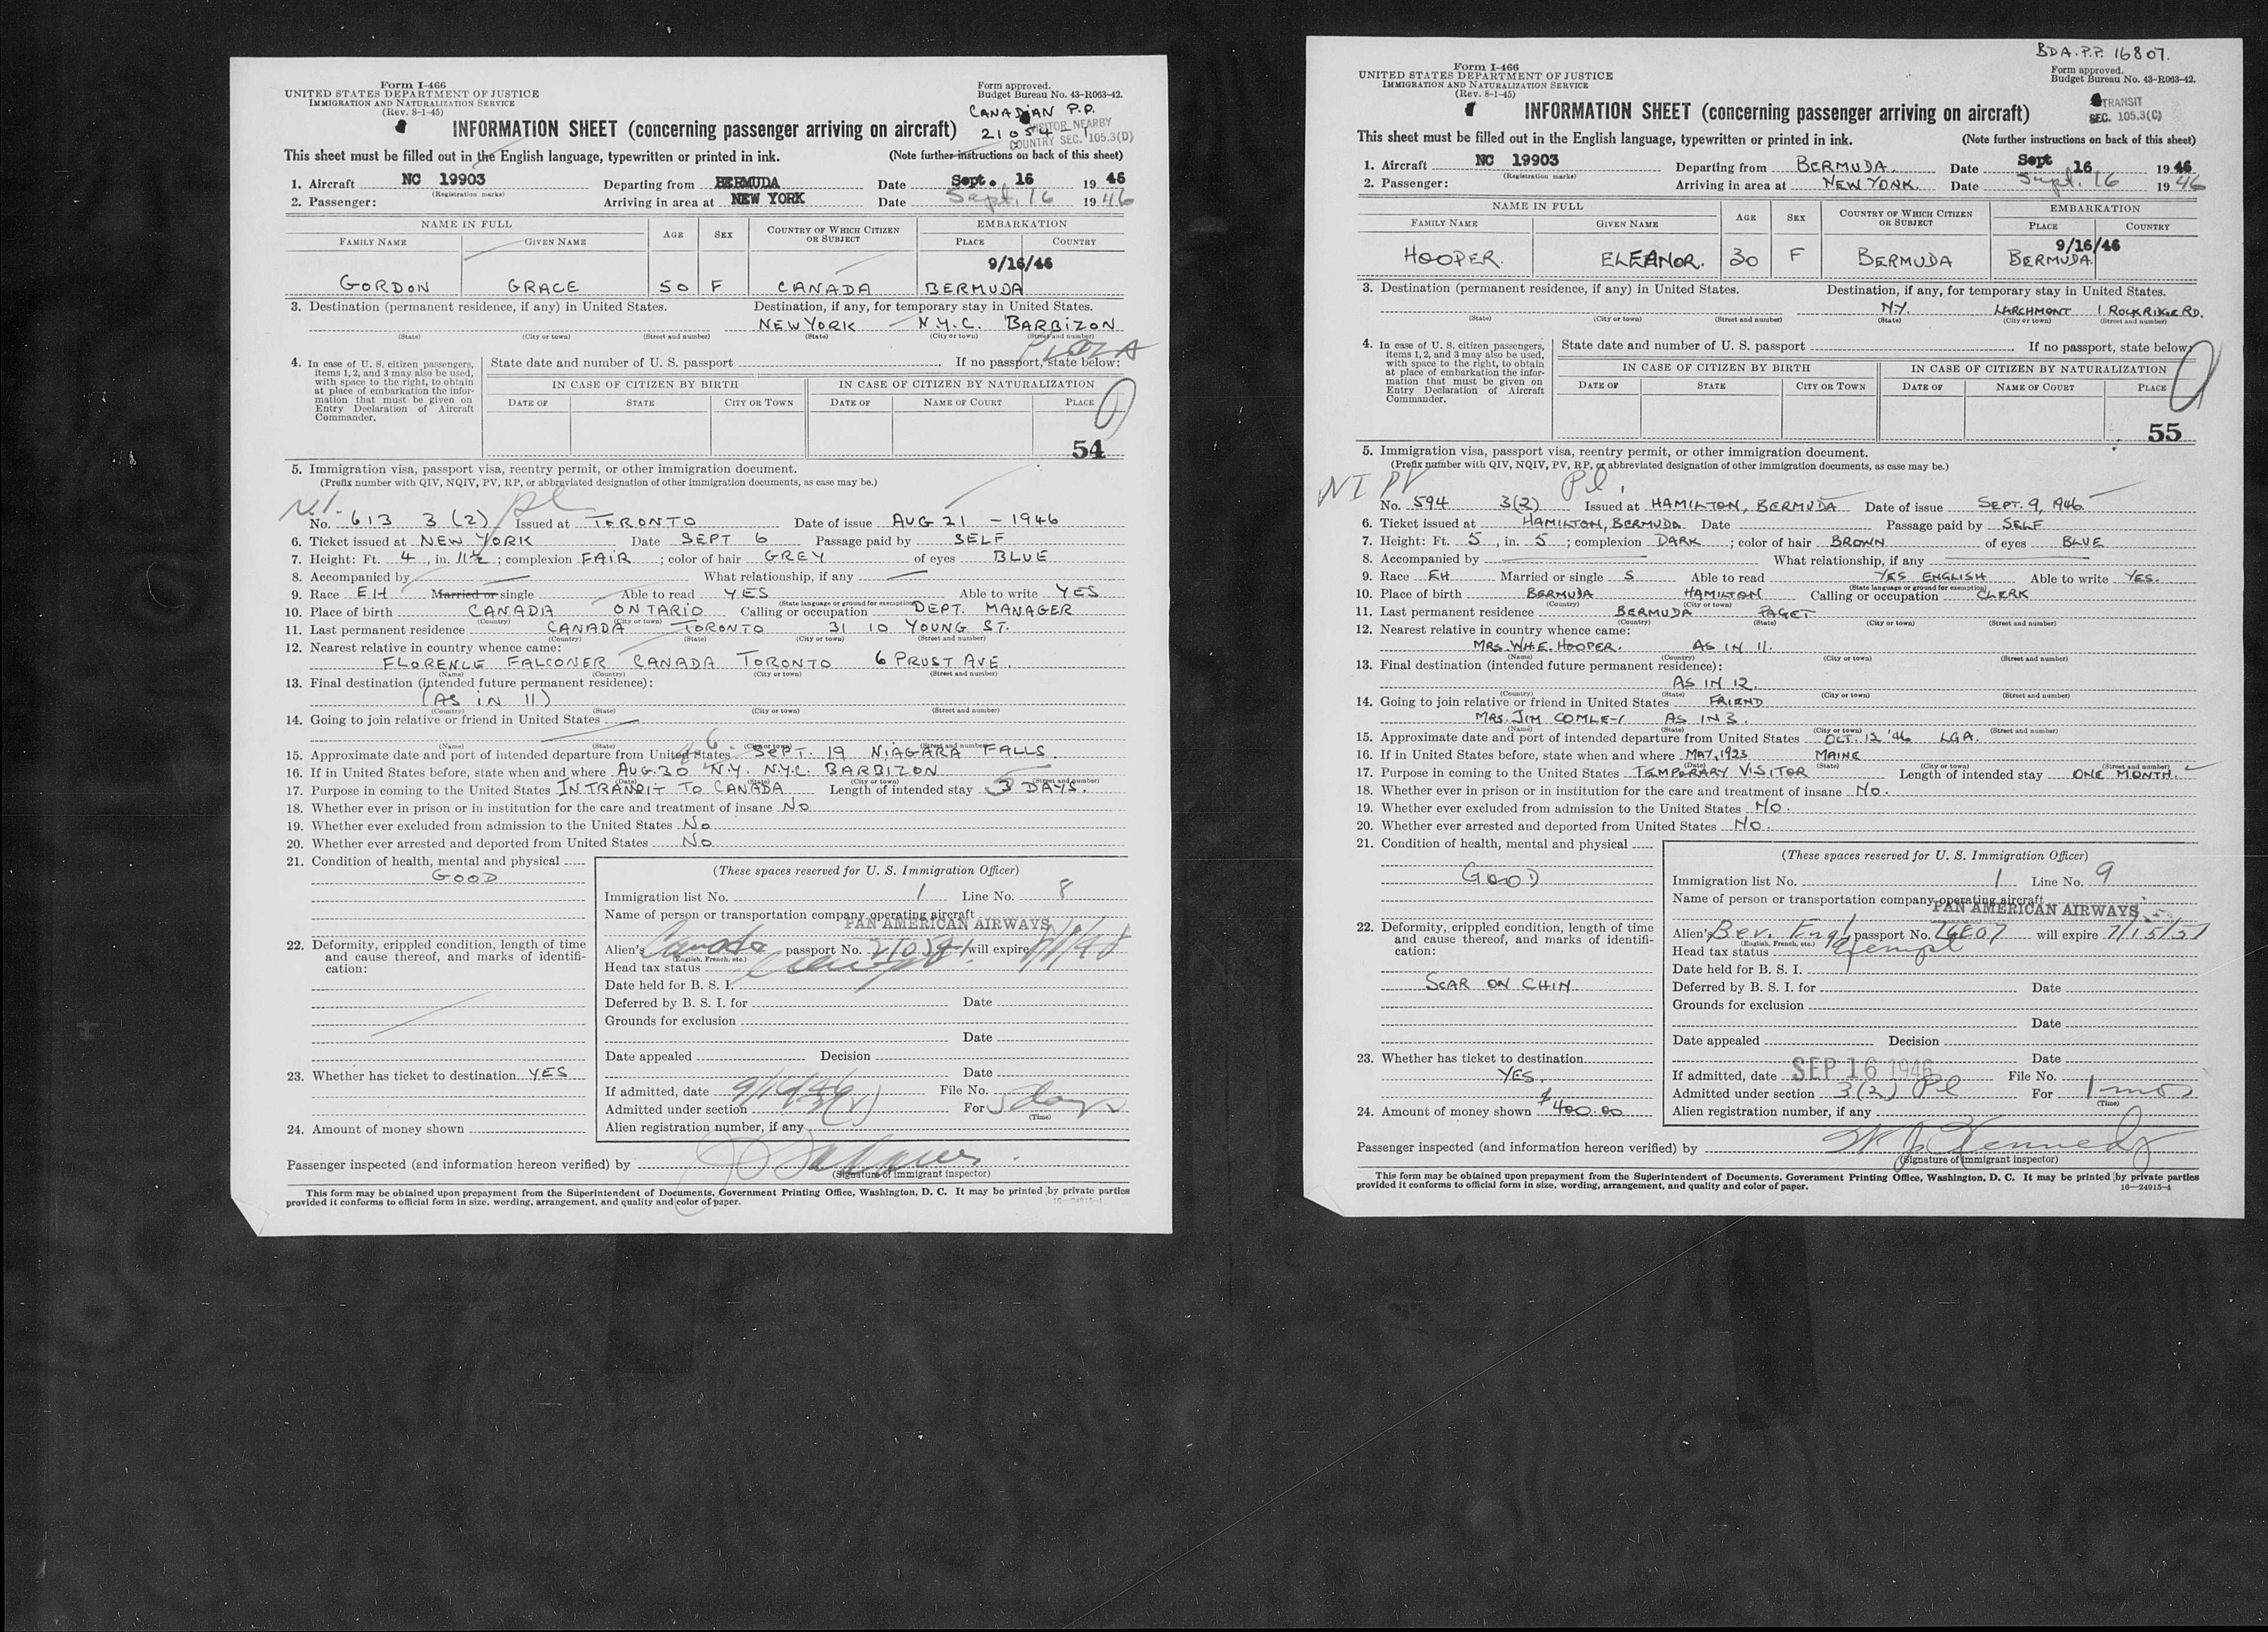 Form I-466
UNITED STATES DEPARTMENT OF JUSTICE
IMMIGRATION AND NATURALIZATION SERVICE
(Rev. 8-1-45)
Form approved.
Budget Bureau No. 43-R063-42.
CANADIAN P.P.
VISITOR NEARBY
COUNTRY SEC. 105.3(D)
INFORMATION SHEET (concerning passenger arriving on aircraft)
This sheet must be filled out in the English language, typewritten or printed in ink. (Note further instructions on back of this sheet)
1. Aircraft NC 19903 Departing from BERMUDA Date Sept. 16 19 46
(Registration marks)
2. Passenger: Arriving in area at NEW YORK Date Sept. 16 19 46
NAME IN FULL AGE SEX COUNTRY OF WHICH CITIZEN OR SUBJECT EMBARKATION
FAMILY NAME GIVEN NAME PLACE COUNTRY
9/16/46
GORDON GRACE 50 F CANADA BERMUDA
3. Destination (permanent residence, if any) in United States. Destination, if any, for temporary stay in United States.
NEW YORK N.Y.C. BARBIZON
(State) (City or town) (Street and number) (State) (City or town) (Street and number)
PLAZA
4. In case of U. S. citizen passengers, items 1, 2, and 3 may also be used, with space to the right, to obtain at place of embarkation the information that must be given on Entry Declaration of Aircraft Commander.
State date and number of U. S. passport If no passport, state below:
IN CASE OF CITIZEN BY BIRTH IN CASE OF CITIZEN BY NATURALIZATION
DATE OF STATE CITY OR TOWN DATE OF NAME OF COURT PLACE
54
5. Immigration visa, passport visa, reentry permit, or other immigration document.
(Prefix number with QIV, NQIV, PV, RP, or abbreviated designation of other immigration documents, as case may be.)
No. 613 3(2) Issued at TORONTO Date of issue AUG 21 - 1946
6. Ticket issued at NEW YORK Date SEPT 6 Passage paid by SELF
7. Height: Ft. 4, in. 11½; complexion FAIR; color of hair GREY of eyes BLUE
8. Accompanied by What relationship, if any
9. Race EH Married or single Able to read YES Able to write YES
(State language or ground for exemption)
10. Place of birth CANADA ONTARIO Calling or occupation DEPT. MANAGER
(Country) (City or town)
11. Last permanent residence CANADA TORONTO 31 10 YOUNG ST.
(Country) (State) (City or town) (Street and number)
12. Nearest relative in country whence came:
FLORENCE FALCONER CANADA TORONTO 6 PRUST AVE.
(Name) (Country) (City or town) (Street and number)
13. Final destination (intended future permanent residence):
(AS IN 11)
(Country) (State) (City or town) (Street and number)
14. Going to join relative or friend in United States
(Name) (State) (City or town) (Street and number)
15. Approximate date and port of intended departure from United States SEPT. 19 NIAGARA FALLS
16. If in United States before, state when and where AUG. 30 N.Y. N.Y.C. BARBIZON
(Date) (State) (City or town) (Street and number)
17. Purpose in coming to the United States IN TRANSIT TO CANADA Length of intended stay 3 DAYS.
18. Whether ever in prison or in institution for the care and treatment of insane NO
19. Whether ever excluded from admission to the United States NO
20. Whether ever arrested and deported from United States NO
21. Condition of health, mental and physical
GOOD
22. Deformity, crippled condition, length of time and cause thereof, and marks of identification:
23. Whether has ticket to destination YES
24. Amount of money shown
(These spaces reserved for U. S. Immigration Officer)
Immigration list No. 1 Line No. 8
Name of person or transportation company operating aircraft
PAN AMERICAN AIRWAYS
Alien's Canada passport No. will expire
(English, French, etc.)
Head tax status
Date held for B. S. I.
Deferred by B. S. I. for Date
Grounds for exclusion
Date
Date appealed Decision
Date
If admitted, date 9/16/46 File No.
Admitted under section 3(2) For days
(Time)
Alien registration number, if any
Passenger inspected (and information hereon verified) by
(Signature of immigrant inspector)
This form may be obtained upon prepayment from the Superintendent of Documents, Government Printing Office, Washington, D. C. It may be printed by private parties
provided it conforms to official form in size, wording, arrangement, and quality and color of paper. 16—24915-4
BDA. P.P. 16807.
Form I-466
UNITED STATES DEPARTMENT OF JUSTICE
IMMIGRATION AND NATURALIZATION SERVICE
(Rev. 8-1-45)
Form approved.
Budget Bureau No. 43-R063-42.
TRANSIT
SEC. 105.3(C)
INFORMATION SHEET (concerning passenger arriving on aircraft)
This sheet must be filled out in the English language, typewritten or printed in ink. (Note further instructions on back of this sheet)
1. Aircraft NC 19903 Departing from BERMUDA. Date Sept 16 19 46
(Registration marks)
2. Passenger: Arriving in area at NEW YORK. Date Sept. 16 19 46
NAME IN FULL AGE SEX COUNTRY OF WHICH CITIZEN OR SUBJECT EMBARKATION
FAMILY NAME GIVEN NAME PLACE COUNTRY
9/16/46
HOOPER. ELEANOR. 30 F BERMUDA BERMUDA
3. Destination (permanent residence, if any) in United States. Destination, if any, for temporary stay in United States.
N.Y. LARCHMONT 1 ROCKRIDGE RD.
(State) (City or town) (Street and number) (State) (City or town) (Street and number)
4. In case of U. S. citizen passengers, items 1, 2, and 3 may also be used, with space to the right, to obtain at place of embarkation the information that must be given on Entry Declaration of Aircraft Commander.
State date and number of U. S. passport If no passport, state below:
IN CASE OF CITIZEN BY BIRTH IN CASE OF CITIZEN BY NATURALIZATION
DATE OF STATE CITY OR TOWN DATE OF NAME OF COURT PLACE
55
5. Immigration visa, passport visa, reentry permit, or other immigration document.
(Prefix number with QIV, NQIV, PV, RP, or abbreviated designation of other immigration documents, as case may be.)
NI PV Pl.
No. 594 3(2) Issued at HAMILTON, BERMUDA Date of issue SEPT. 9, 1946
6. Ticket issued at HAMILTON, BERMUDA Date Passage paid by SELF
7. Height: Ft. 5, in. 5; complexion DARK; color of hair BROWN of eyes BLUE
8. Accompanied by What relationship, if any
9. Race EH Married or single S Able to read YES ENGLISH Able to write YES.
(State language or ground for exemption)
10. Place of birth BERMUDA HAMILTON Calling or occupation CLERK
(Country) (City or town)
11. Last permanent residence BERMUDA PAGET
(Country) (State) (City or town) (Street and number)
12. Nearest relative in country whence came:
MRS. W.H.E. HOOPER. AS IN 11.
(Name) (Country) (City or town) (Street and number)
13. Final destination (intended future permanent residence):
AS IN 12.
(Country) (State) (City or town) (Street and number)
14. Going to join relative or friend in United States FRIEND
MRS. JIM AS IN 3.
(Name) (State) (City or town) (Street and number)
15. Approximate date and port of intended departure from United States OCT. 12 '46 LGA.
16. If in United States before, state when and where MAY, 1923 MAINE
(Date) (State) (City or town) (Street and number)
17. Purpose in coming to the United States TEMPORARY VISITOR Length of intended stay ONE MONTH.
18. Whether ever in prison or in institution for the care and treatment of insane NO.
19. Whether ever excluded from admission to the United States NO.
20. Whether ever arrested and deported from United States NO.
21. Condition of health, mental and physical
GOOD
22. Deformity, crippled condition, length of time and cause thereof, and marks of identification:
SCAR ON CHIN
23. Whether has ticket to destination
YES.
24. Amount of money shown $400.00
(These spaces reserved for U. S. Immigration Officer)
Immigration list No. 1 Line No. 9
Name of person or transportation company operating aircraft
PAN AMERICAN AIRWAYS
Alien's passport No. 16807 will expire 7/15/51
(English, French, etc.)
Head tax status exempt
Date held for B. S. I.
Deferred by B. S. I. for Date
Grounds for exclusion
Date
Date appealed Decision
Date
If admitted, date SEP 16 1946 File No.
Admitted under section 3(2) Pl For 1 mo
(Time)
Alien registration number, if any
Passenger inspected (and information hereon verified) by W J Kennedy
(Signature of immigrant inspector)
This form may be obtained upon prepayment from the Superintendent of Documents, Government Printing Office, Washington, D. C. It may be printed by private parties
provided it conforms to official form in size, wording, arrangement, and quality and color of paper. 16—24915-4